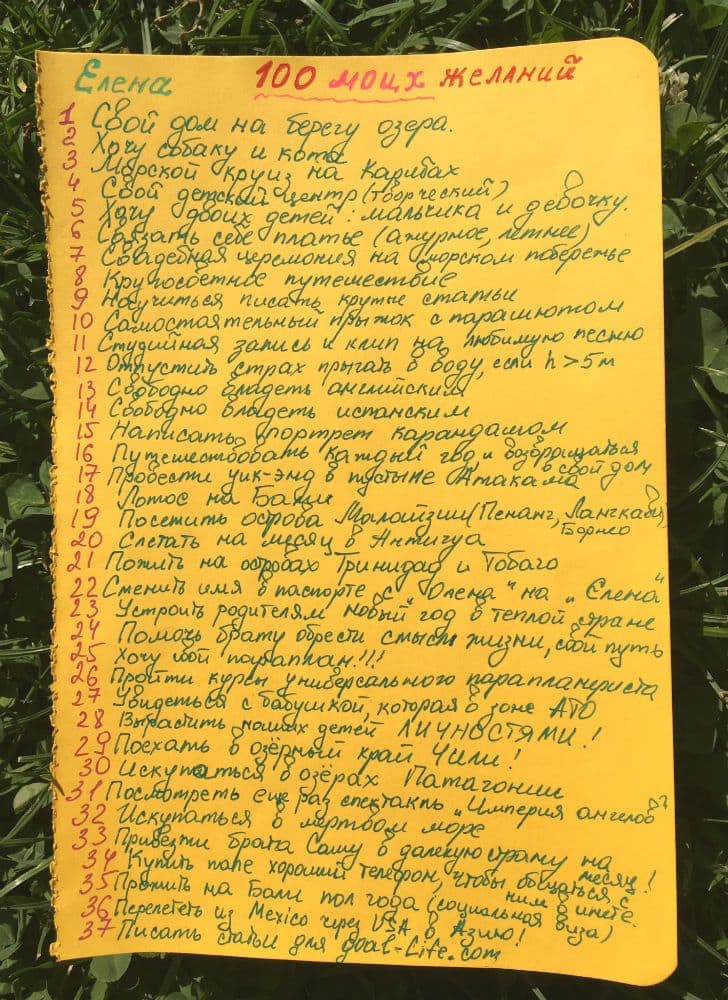 Елена 100 моих желаний
1 Свой дом на берегу озера.
2 Хочу собаку и кота
3 Морской круиз на Карибах
4 Свой детский центр (творческий)
5 Хочу двоих детей: мальчика и девочку.
6 Связать себе платье (ажурное, летнее)
7 Свадебная церемония на морском побережье
8 Кругосветное путешествие
9 Научиться писать крутые статьи
10 Самостоятельный прыжок с парашютом
11 Студийная запись и клип на любимую песню
12 Отпустить страх прыгать в воду, если h > 5 м
13 Свободно владеть английским
14 Свободно владеть испанским
15 Написать портрет карандашом
16 Путешествовать каждый год и возвращаться
в свой дом
17 Провести уик-энд в пустыне Атакама
18 Лотос на Бали
19 Посетить острова Малайзии (Пенанг, Лангкави,
Борнео
20 Слетать на месяц в Антигуа
21 Пожить на островах Тринидад и Тобаго
22 Сменить имя в паспорте с „Олена" на „Елена"
23 Устроить родителям новый год в теплой стране
24 Помочь брату обрести смысл жизни, свой путь
25 Хочу свой параплан!!!
26 Пройти курсы универсального парапланериста
27 Увидеться с бабушкой, которая в зоне АТО
28 Вырастить наших детей ЛИЧНОСТЯМИ!
29 Поехать в озёрный край Чили!
30 Искупаться в озёрах Патагонии
31 Посмотреть еще раз спектакль „Империя ангелов"
32 Искупаться в мертвом море
33 Привезти брата Сашу в далекую страну на
месяц!
34 Купить папе хороший телефон, чтобы общаться с
ним в инете.
35 Прожить на Бали пол года (социальная виза)
36 Перелететь из Mexico через USA в Азию!
37 Писать статьи для goal-life.com